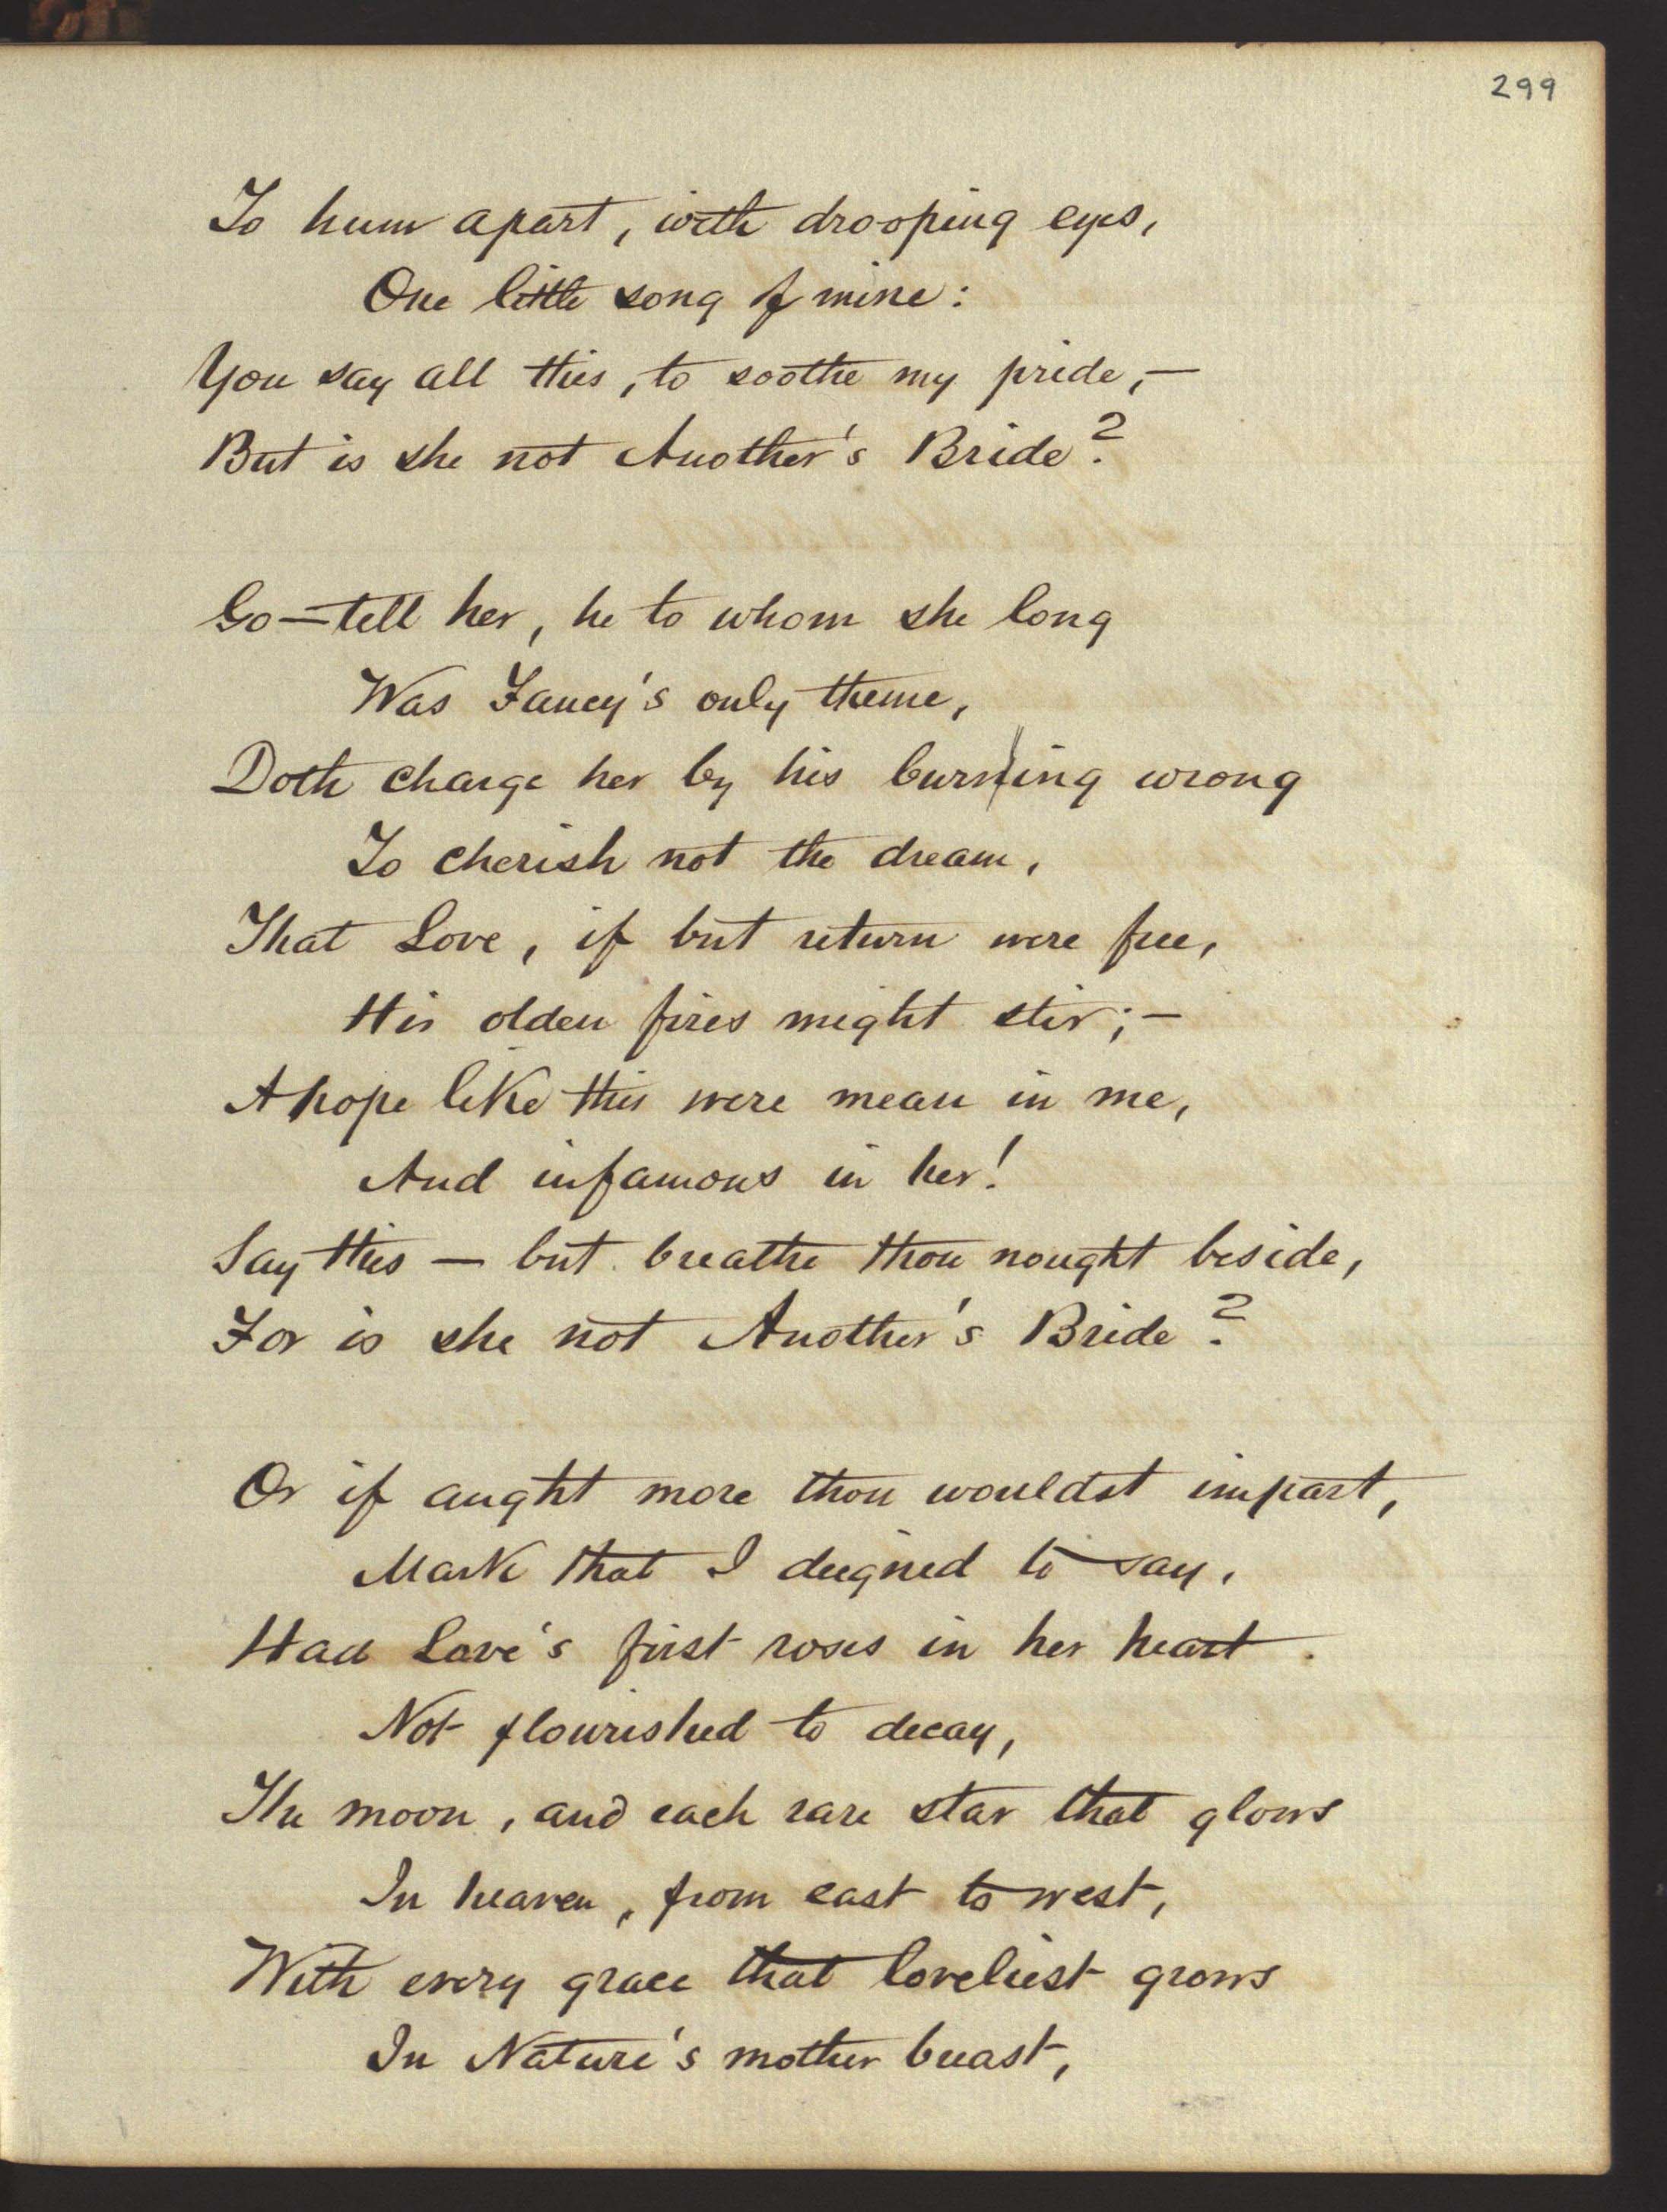 299
To hum apart, with drooping eyes,
One little song of mine:
You say all this, to soothe my pride,—
But is she not Another's Bride?
Go—tell her, he to whom she long
Was Fancy's only theme,
Doth charge her by his burning wrong
To cherish not the dream,
That Love, if but return were free,
His olden fires might stir;—
A hope like this were mean in me,
And infamous in her!
Say this — but breathe thou nought beside,
For is she not Another's Bride?
Or if aught more thou wouldst impart,
Mark that I deigned to say,
Had Love's first roses in her heart.
Not flourished to decay,
The moon, and each rare star that glows
In heaven, from east to west,
With every grace that loveliest grows
In Nature's mother breast,